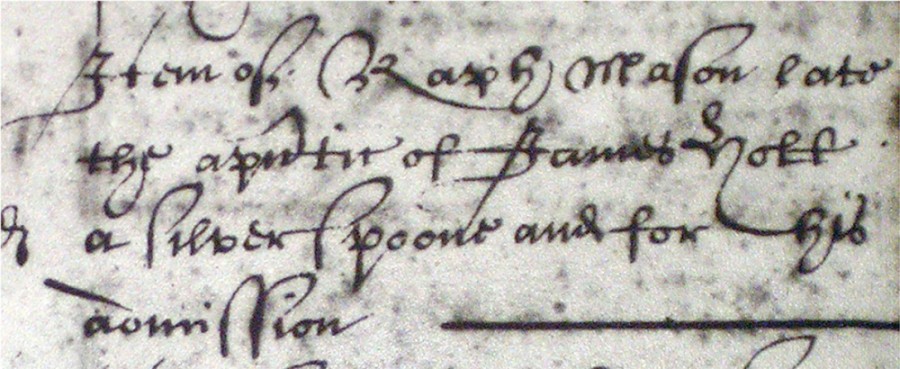 Item of Raph Mason late
the apñtic of James
a silver spoone and for his
admission